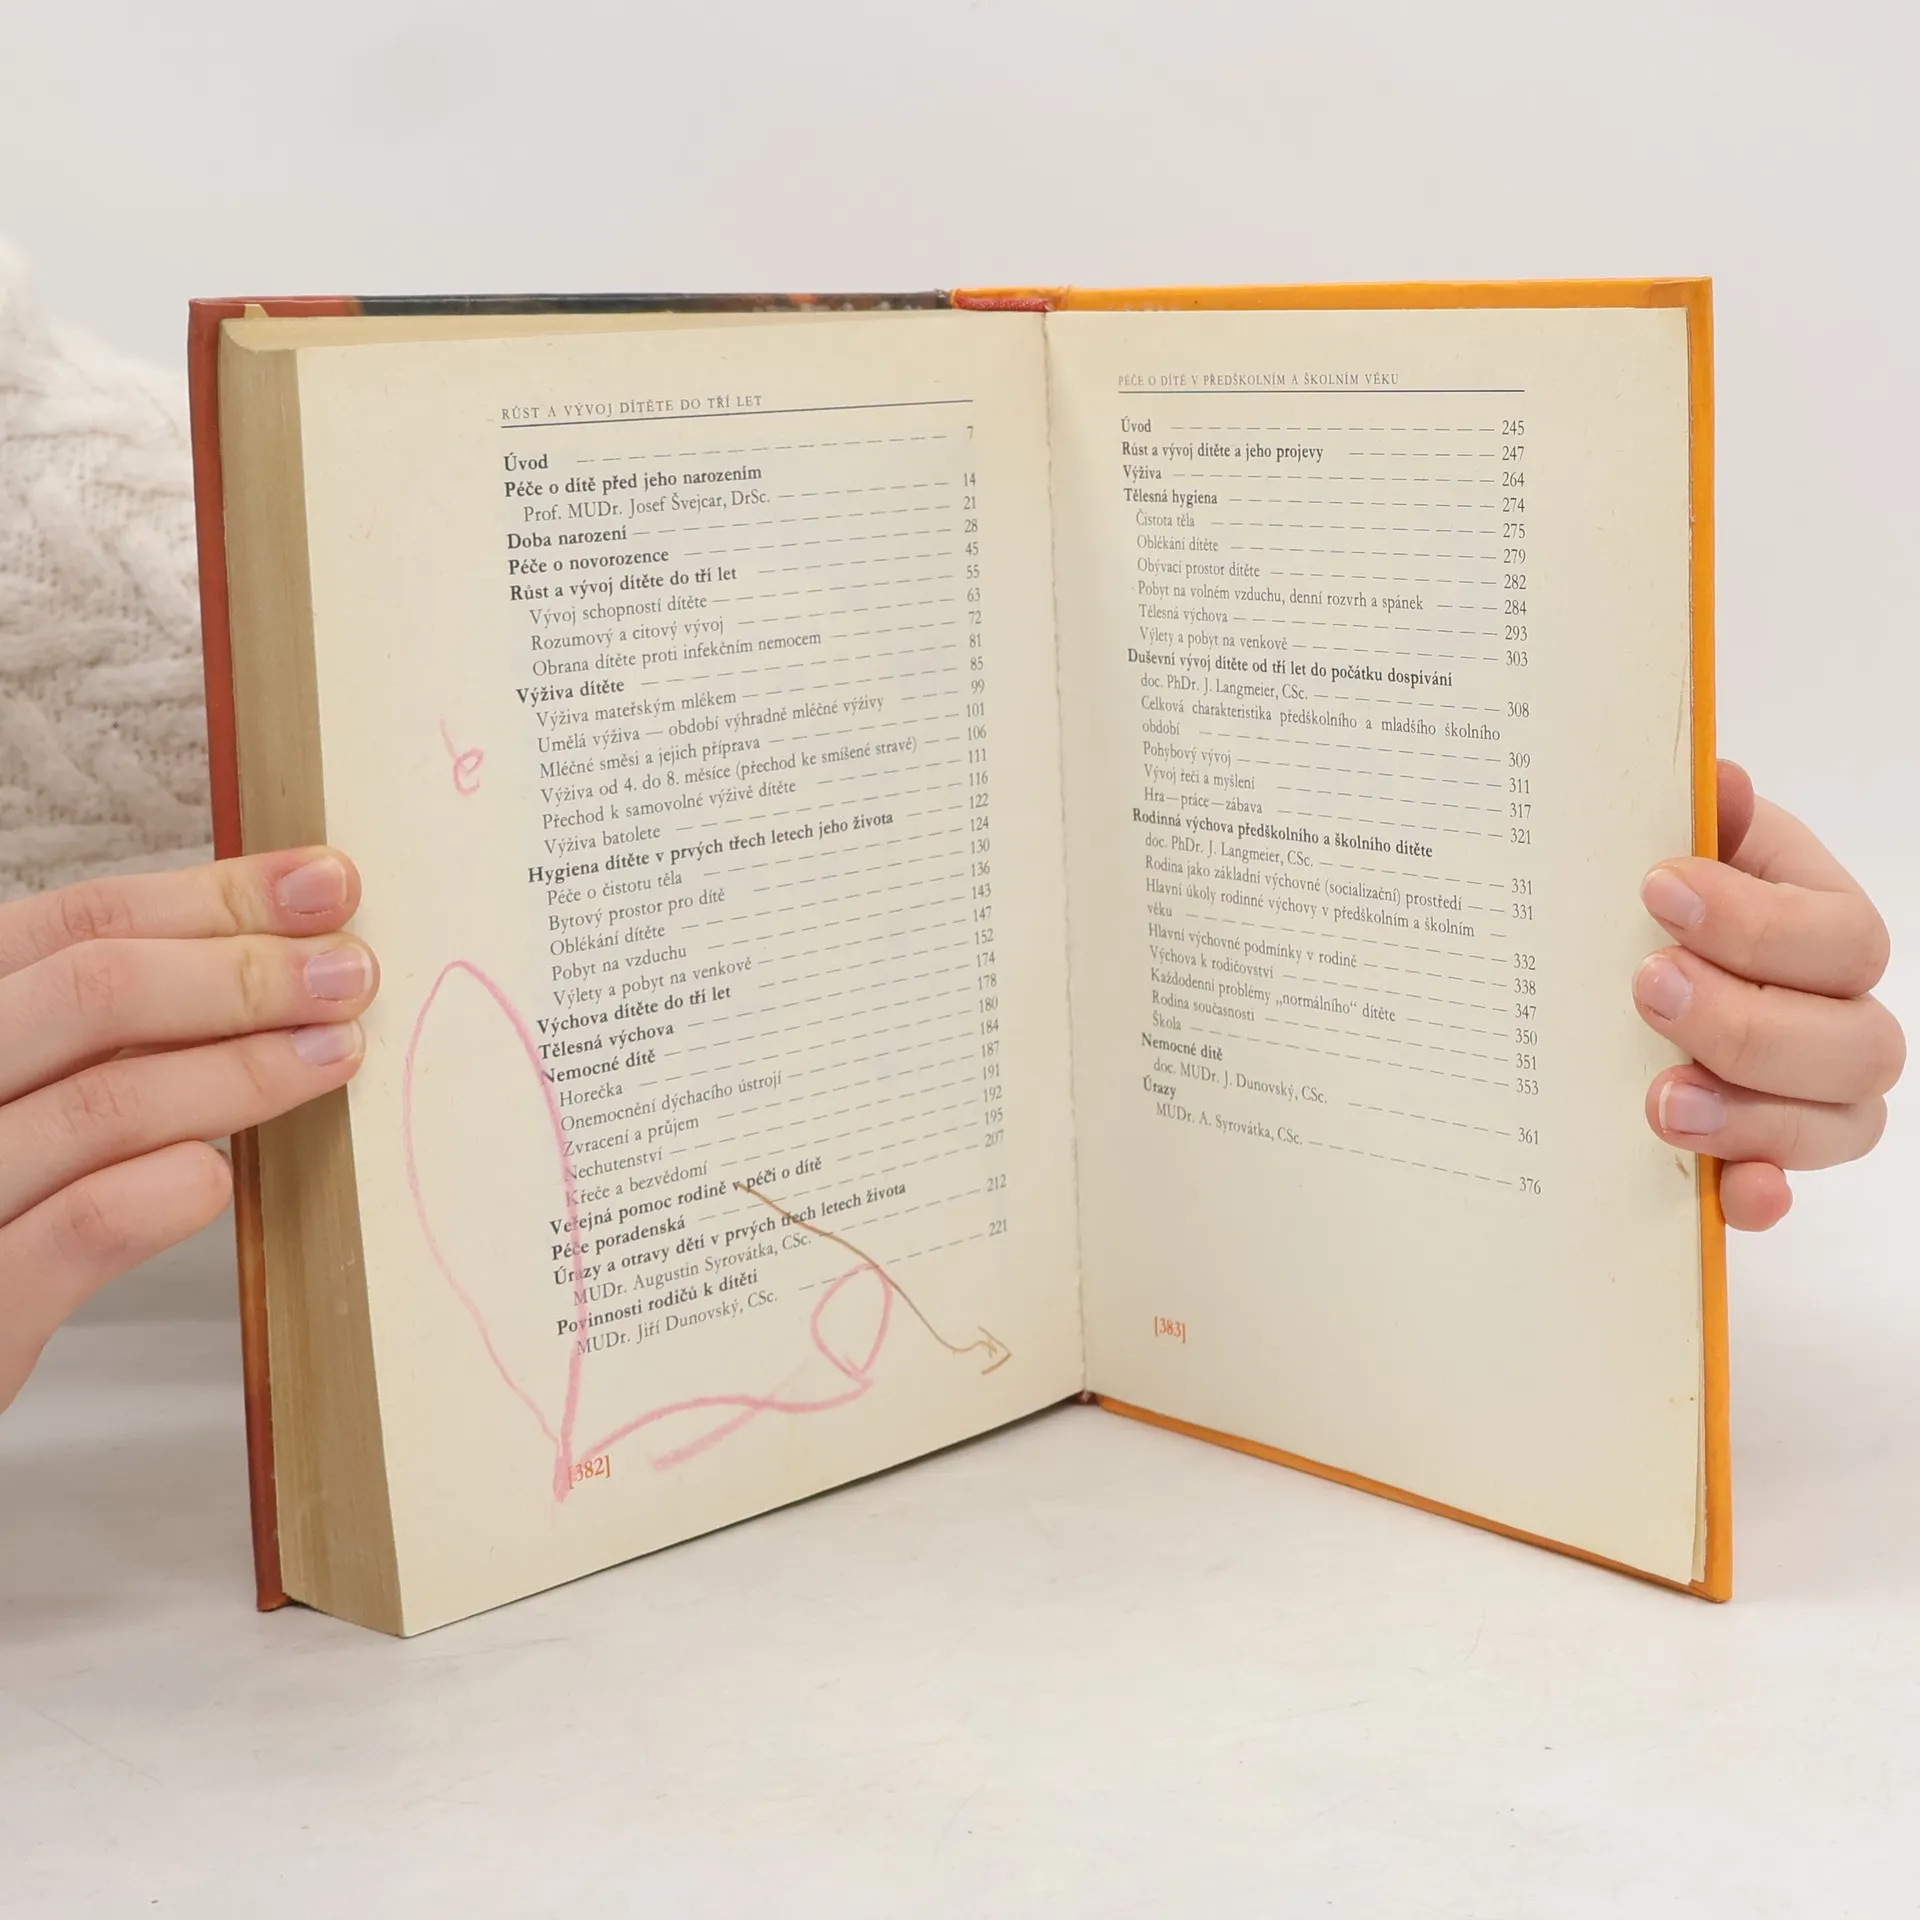 RŮST A VÝVOJ DÍTĚTE DO TŘÍ LET
Úvod — 7
Péče o dítě před jeho narozením
Prof. MUDr. Josef Švejcar, DrSc. — 14
Doba narození — 21
Péče o novorozence — 28
Růst a vývoj dítěte do tří let — 45
Vývoj schopností dítěte — 55
Rozumový a citový vývoj — 63
Obrana dítěte proti infekčním nemocem — 72
Výživa dítěte — 81
Výživa mateřským mlékem — 85
Umělá výživa — období výhradně mléčné výživy — 99
Mléčné směsi a jejich příprava — 101
Výživa od 4. do 8. měsíce (přechod ke smíšené stravě) — 106
Přechod k samovolné výživě dítěte — 111
Výživa batolete — 116
Hygiena dítěte v prvých třech letech jeho života — 122
Péče o čistotu těla — 124
Bytový prostor pro dítě — 130
Oblékání dítěte — 136
Pobyt na vzduchu — 143
Výlety a pobyt na venkově — 147
Výchova dítěte do tří let — 152
Tělesná výchova — 174
Nemocné dítě — 178
Horečka — 180
Onemocnění dýchacího ústrojí — 184
Zvracení a průjem — 187
Nechutenství — 191
Křeče a bezvědomí — 192
Veřejná pomoc rodině v péči o dítě — 195
Péče poradenská — 207
Úrazy a otravy dětí v prvých třech letech života
MUDr. Augustin Syrovátka, CSc. — 212
Povinnosti rodičů k dítěti
MUDr. Jiří Dunovský, CSc. — 221
[382]
PÉČE O DÍTĚ V PŘEDŠKOLNÍM A ŠKOLNÍM VĚKU
Úvod — 245
Růst a vývoj dítěte a jeho projevy — 247
Výživa — 264
Tělesná hygiena — 274
Čistota těla — 275
Oblékání dítěte — 279
Obývací prostor dítěte — 282
Pobyt na volném vzduchu, denní rozvrh a spánek — 284
Tělesná výchova — 293
Výlety a pobyt na venkově — 303
Duševní vývoj dítěte od tří let do počátku dospívání
doc. PhDr. J. Langmeier, CSc. — 308
Celková charakteristika předškolního a mladšího školního
období — 309
Pohybový vývoj — 311
Vývoj řeči a myšlení — 317
Hra—práce—zábava — 321
Rodinná výchova předškolního a školního dítěte
doc. PhDr. J. Langmeier, CSc. — 331
Rodina jako základní výchovné (socializační) prostředí — 331
Hlavní úkoly rodinné výchovy v předškolním a školním
věku — 332
Hlavní výchovné podmínky v rodině — 338
Výchova k rodičovství — 347
Každodenní problémy „normálního“ dítěte — 350
Rodina současnosti — 351
Škola — 353
Nemocné dítě
doc. MUDr. J. Dunovský, CSc. — 361
Úrazy
MUDr. A. Syrovátka, CSc. — 376
[383]